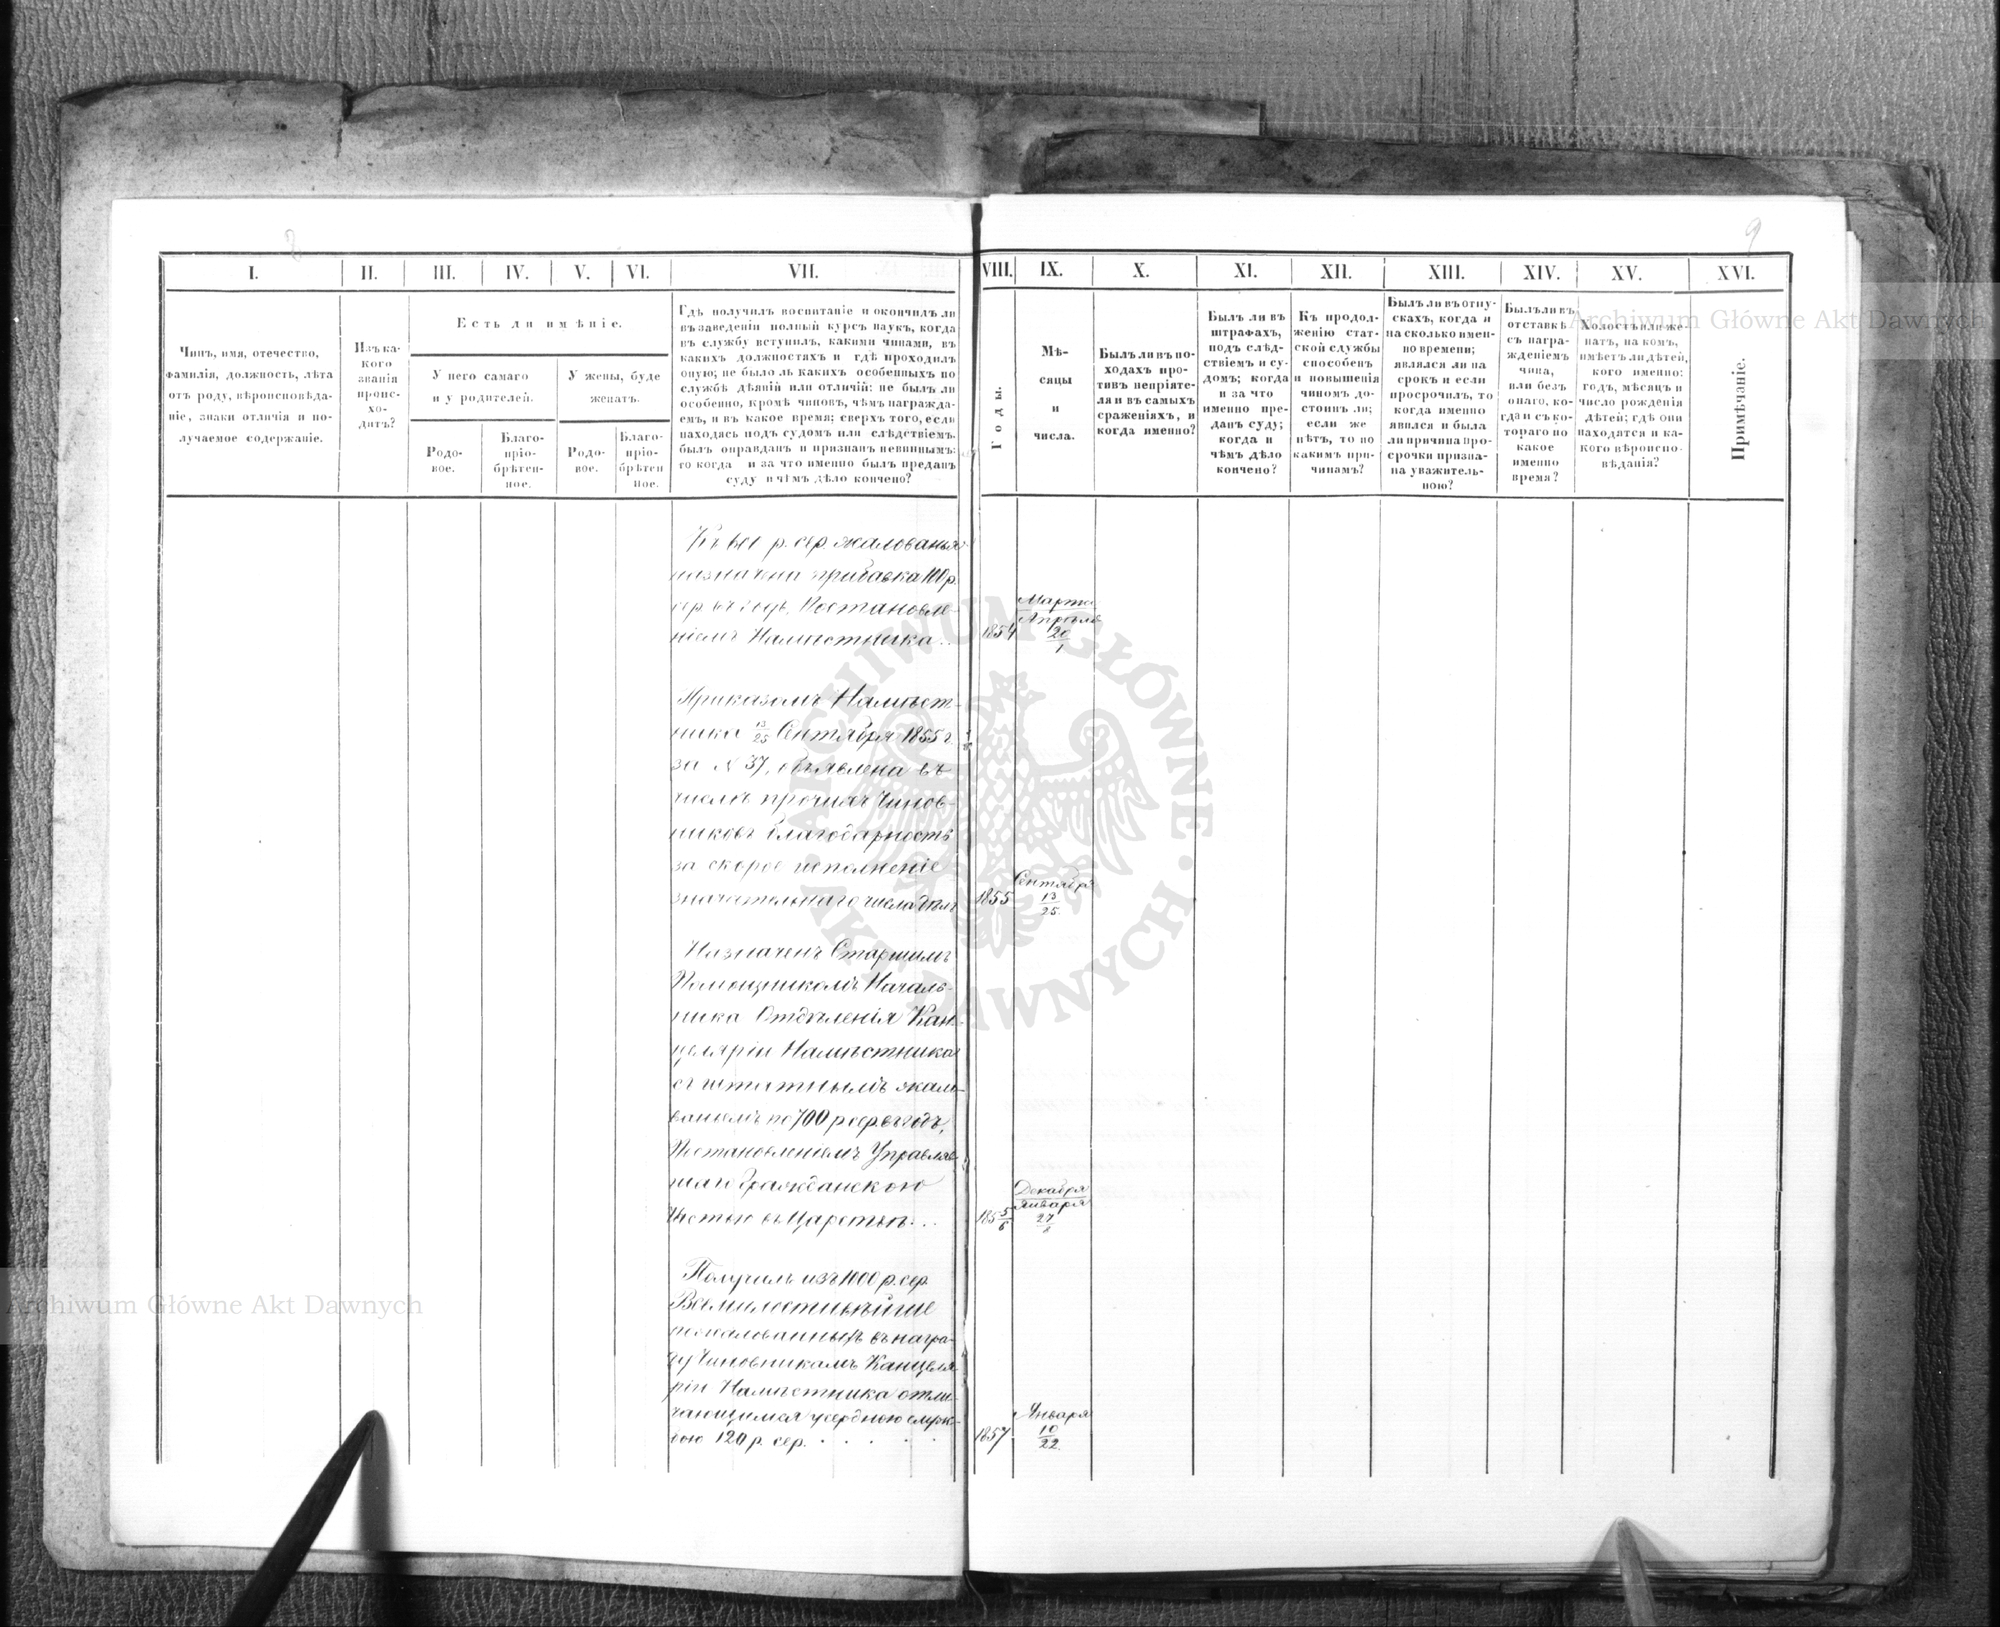 9
I.
II.
III.
IV.
V.
VI.
VII.
VIII.
IX.
X.
XI.
XII.
XIII.
XIV.
XV.
XVI.
Чинъ, имя, отечество,
фамилія, должность, лѣта
отъ роду, вѣроисповѣда-
ніе, знаки отличія и по-
лучаемое содержаніе.
Изъ ка-
кого
званія
проис-
хо-
дитъ?
Есть ли имѣніе.
У него самаго
и у родителей.
У жены, буде
женатъ.
Родо-
вое.
Благо-
пріо-
брѣтен-
ное.
Родо-
вое.
Благо-
пріо-
брѣтен
ное.
Гдѣ получилъ воспитаніе и окончилъ ли
въ заведеніи полный курсъ наукъ, когда
въ службу вступилъ, какими чинами, въ
какихъ должностяхъ и гдѣ проходилъ
оную; не было ль какихъ особенныхъ по
службѣ дѣяній или отличій; не былъ ли
особенно, кромѣ чиновъ, чѣмъ награжда-
емъ, и въ какое время; сверхъ того, если
находясь подъ судомъ или слѣдствіемъ
былъ оправданъ и признанъ невиннымъ;
то когда и за что именно былъ преданъ
суду и чѣмъ дѣло кончено?
Годы.
Мѣ-
сяцы
и
числа.
Былъ ли въ по-
ходахъ про-
тивъ непріяте-
ля и въ самыхъ
сраженіяхъ, и
когда именно?
Былъ ли въ
штрафахъ,
подъ слѣд-
ствіемъ и су-
домъ; когда
и за что
именно пре-
данъ суду;
когда и
чѣмъ дѣло
кончено?
Къ продол-
женію стат-
ской службы
способенъ
и повышенія
чиномъ до-
стоинъ ли;
если же
нѣтъ, то по
какимъ при-
чинамъ?
Былъ ли въ отпу-
скахъ, когда и
на сколько имен-
но времени;
являлся ли на
срокъ и если
просрочилъ, то
когда именно
явился и была
ли причина про-
срочки призна-
на уважитель-
ною?
Былъ ли въ
отставкѣ
съ награ-
жденіемъ
чина,
или безъ
онаго, ко-
гда и съ ко-
тораго по
какое
именно
время?
Холостъ или же-
натъ, на комъ,
имѣетъ ли дѣтей,
кого именно;
годъ, мѣсяцъ и
число рожденія
дѣтей; гдѣ они
находятся и ка-
кого вѣроиспо-
вѣданія?
Примѣчаніе.
р. сер. жалованья
назначена прибавка 100 р.
сер. въ годъ, Постановле-
ніемъ Намѣстника..
1854
Марта
Апрѣля
20
1
Приказомъ Намѣст-
ника 13/25 Сентября 1855 г.
за № 37, объявлена въ
числѣ прочихъ Чинов-
никовъ благодарность
за скорое исполненіе
значительнаго числа дѣлъ
1855
Сентября
13
25.
Назначенъ Старшимъ
Помощникомъ Началь-
ника Отдѣленія Кан-
целяріи Намѣстника
съ штатнымъ жало-
ваньемъ по 700 р. сер. въ годъ,
Постановленіемъ Управляв-
шаго Гражданскою
Частью въ Царствѣ...
185 5/6
Декабря
Января
27
8
Получилъ изъ 1000 р. сер.
Всемилостивѣйше
пожалованныхъ въ награ-
ду Чиновникамъ Канцеля-
ріи Намѣстника отли-
чающимся усердною служ-
бою 120 р. сер. . . . .
1857
Января
10
22.
ARCHIWUM GŁÓWNE AKT DAWNYCH
Archiwum Główne Akt Dawnych
Archiwum Główne Akt Dawnych